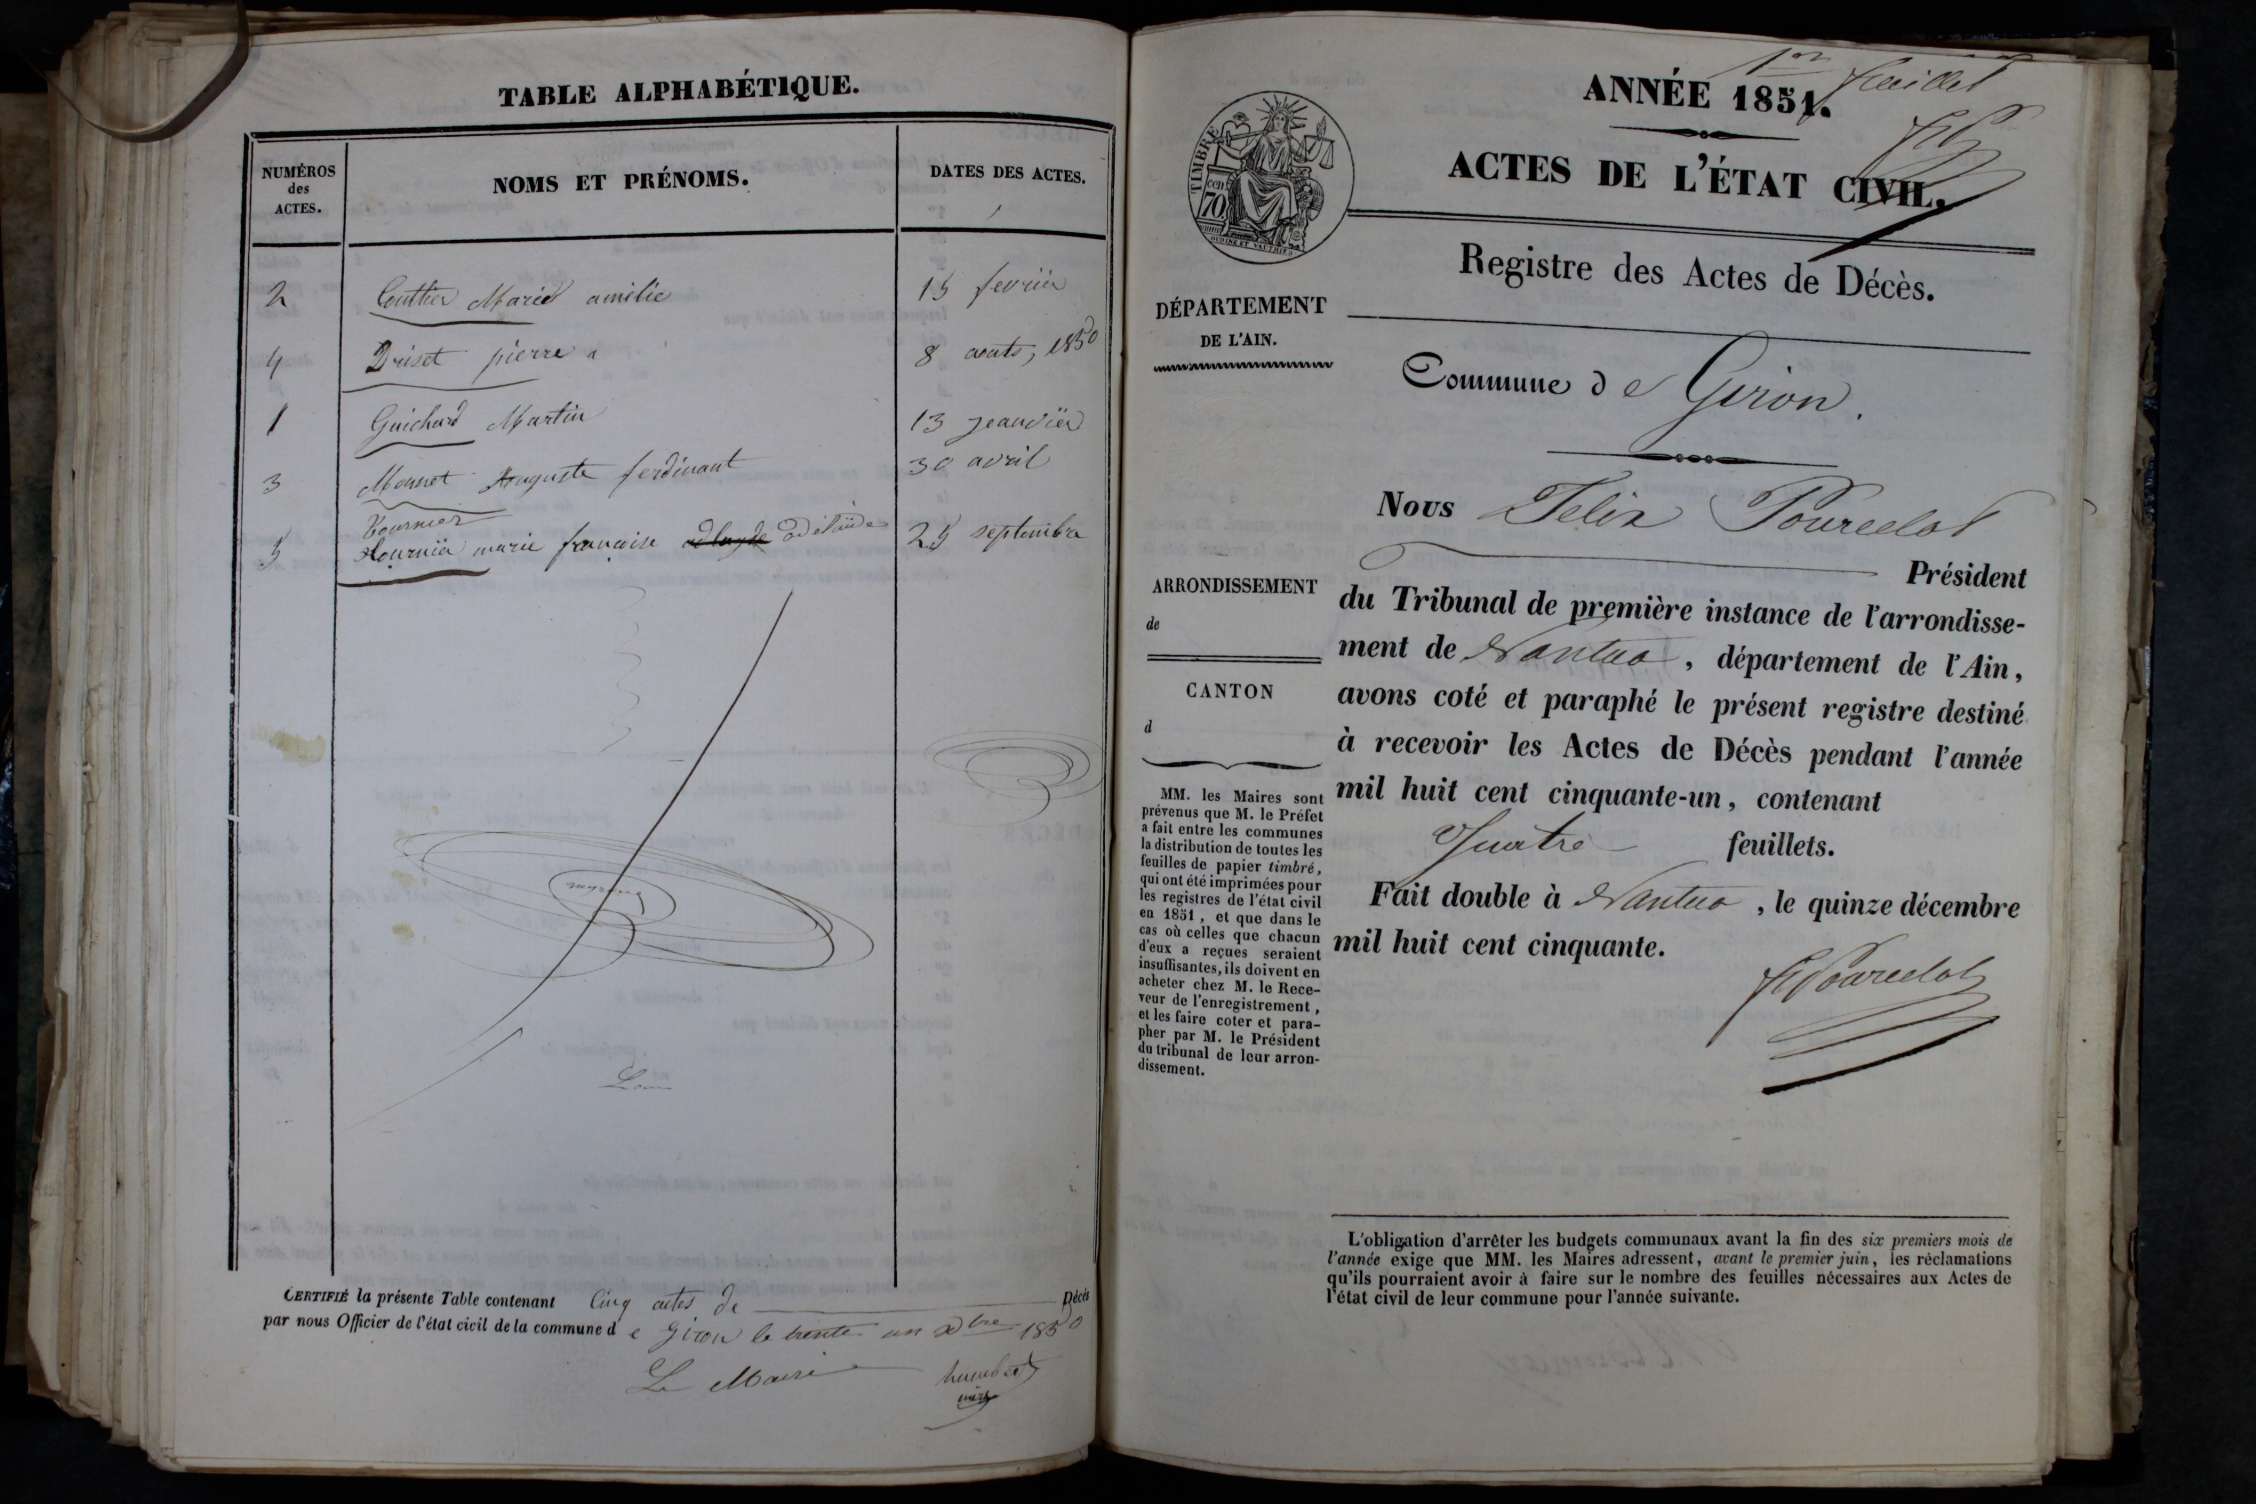 TABLE ALPHABÉTIQUE.
NUMÉROS des ACTES.
NOMS ET PRÉNOMS.
DATES DES ACTES.
2 Marie amélie 15 fevrier
4 Driset pierre 8 aouts, 1850
1 Guichard Martin 13 Jeanvier
3 Monnet Auguste ferdinant 30 avril
Tournier
5 marie francoise 25 septembre
CERTIFIÉ la présente Table contenant Cinq actes de Décès
par nous Officier de l'état civil de la commune de Giron le trente un Xbre 1850
Le Maire humbert
1er feuillet
ANNÉE 1851.
ACTES DE L'ÉTAT CIVIL.
TIMBRE
70
Registre des Actes de Décès.
DÉPARTEMENT
DE L'AIN.
Commune de Giron.
Nous Felix Pourcelot
Président
ARRONDISSEMENT
de
CANTON
d
du Tribunal de première instance de l'arrondisse-
ment de Nantua, département de l'Ain,
avons coté et paraphé le présent registre destiné
à recevoir les Actes de Décès pendant l'année
mil huit cent cinquante-un, contenant
Quatre feuillets.
Fait double à Nantua, le quinze décembre
mil huit cent cinquante.
Pourcelot
MM. les Maires sont
prévenus que M. le Préfet
a fait entre les communes
la distribution de toutes les
feuilles de papier timbré,
qui ont été imprimées pour
les registres de l'état civil
en 1851, et que dans le
cas où celles que chacun
d'eux a reçues seraient
insuffisantes, ils doivent en
acheter chez M. le Rece-
veur de l'enregistrement,
et les faire coter et para-
pher par M. le Président
du tribunal de leur arron-
dissement.
L'obligation d'arrêter les budgets communaux avant la fin des six premiers mois de
l'année exige que MM. les Maires adressent, avant le premier juin, les réclamations
qu'ils pourraient avoir à faire sur le nombre des feuilles nécessaires aux Actes de
l'état civil de leur commune pour l'année suivante.